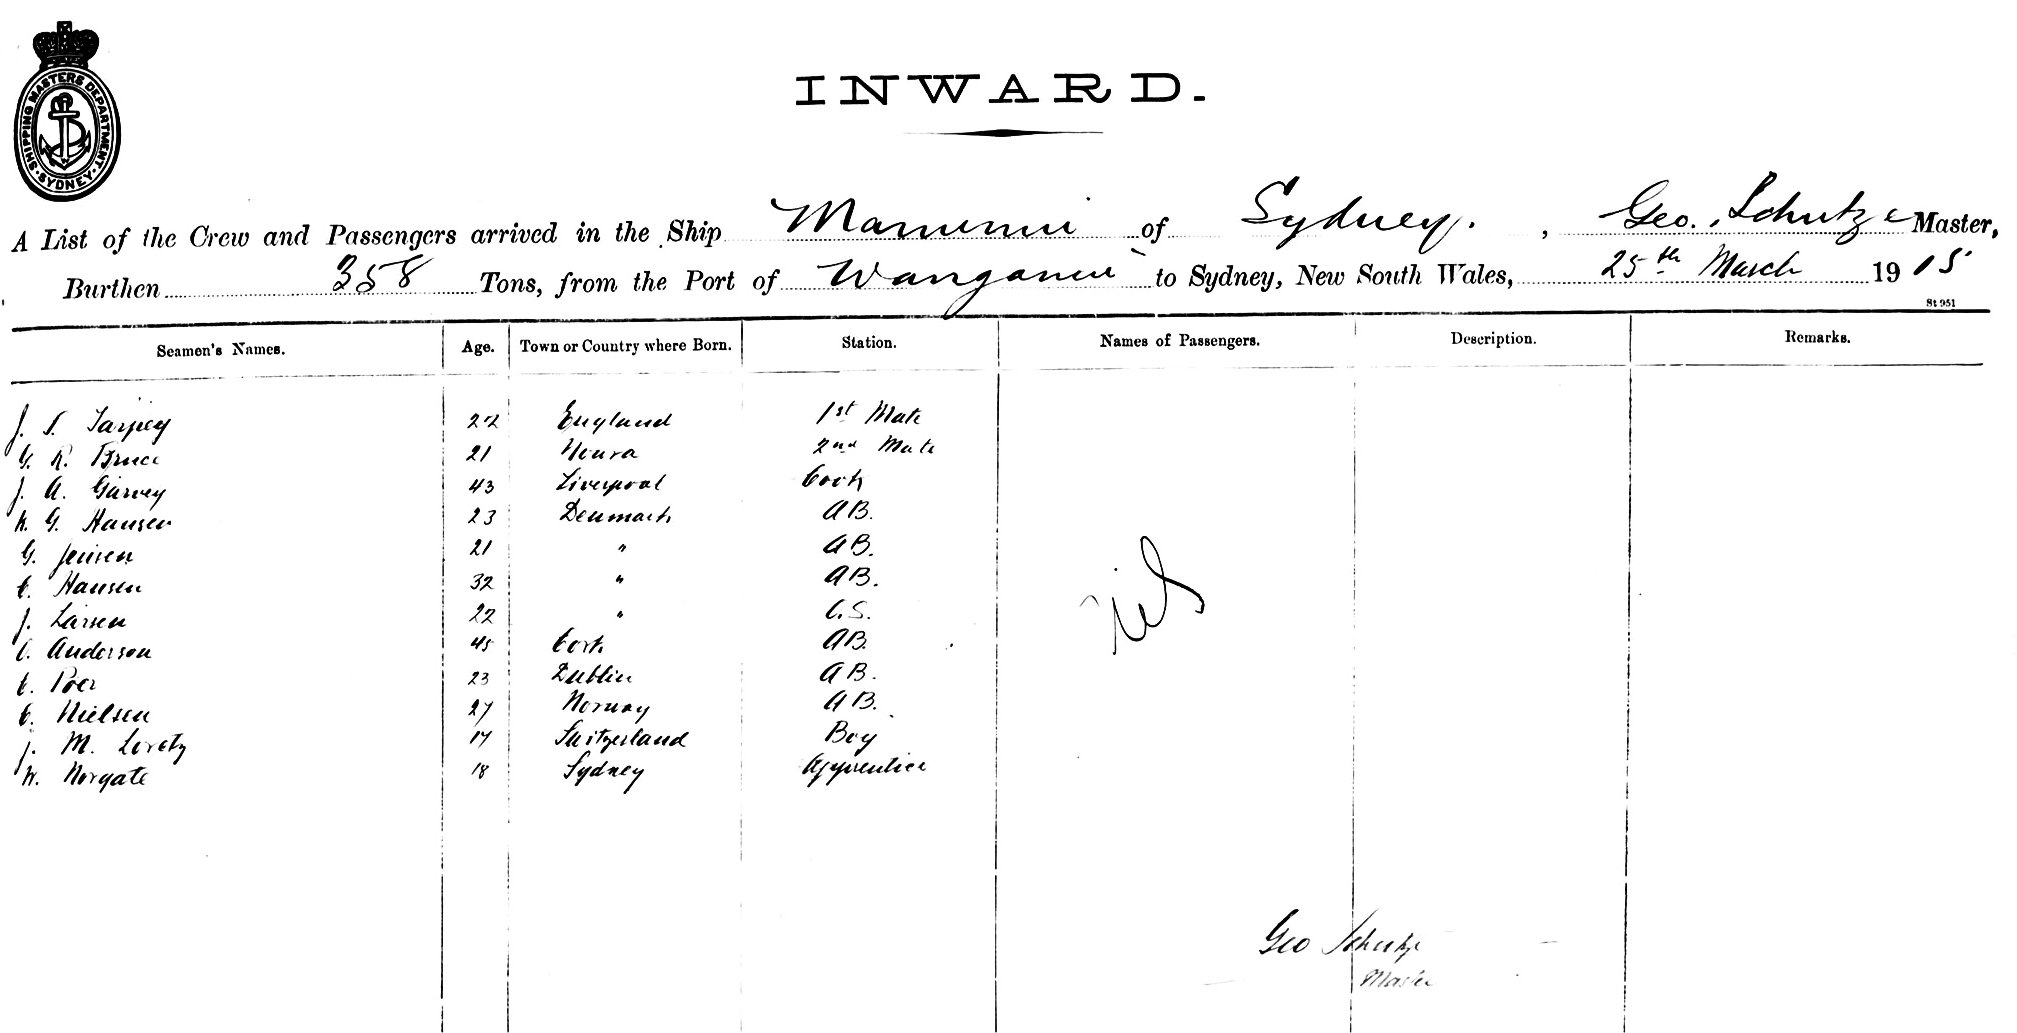 SHIPPING MASTERS DEPARTMENT. SYDNEY.
INWARD.
A List of the Crew and Passengers arrived in the Ship of Sydney. , Geo. Schutze Master,
Burthen 358 Tons, from the Port of Wanganui to Sydney, New South Wales, 25th March 1915
St 951
Seamen's Names. Age. Town or Country where Born. Station. Names of Passengers. Description. Remarks.
J. Tarpey 22 England 1st Mate
G. R. Bruce 21 Noura 2nd Mate
J. A. Garvey 43 Liverpool Cook
G. Hansen 23 Denmark AB.
G. Jensen 21 " AB.
C. Hansen 32 " AB.
J. Larsen 22 " O.S.
Anderson 45 Cork AB.
Poer 23 Dublin AB.
C. Nielsen 27 Norway AB.
J. M. Loretz 17 Switzerland Boy
W. Norgate 18 Sydney Apprentice
Geo Schutze
Master